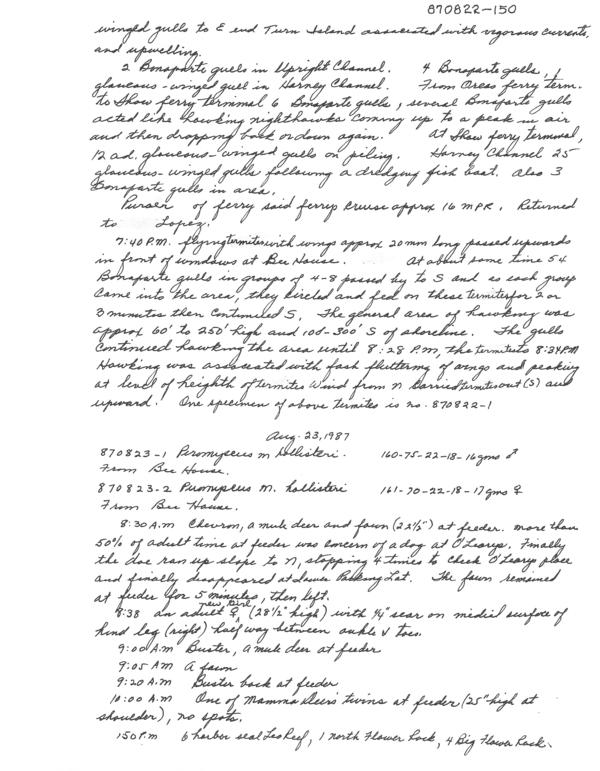 870822-150
winged gulls to E end Turn Island associated with vigorous currents,
and upwelling.
2 Bonaparte gulls in Upright Channel. 4 Bonaparte gulls, 1
glaucous-winged gull in Harney Channel. From Orcas ferry term.
to Shaw ferry terminal 6 Bonaparte gulls, several Bonaparte gulls
acted like hawking nighthawks coming up to a peak in air
and then dropping back or down again. At Shaw ferry terminal,
12 ad. glaucous-winged gulls on piling. Harney Channel 25
glaucous-winged gulls following a dredging fish boat. Also 3
Bonaparte gulls in area.
Purser of ferry said ferry cruise approx 16 MPR. Returned
to Lopez.
7:40 P.M. flying termites with wings approx 20mm long passed upwards
in front of windows at Bee House. At about same time 54
Bonaparte gulls in groups of 4-8 passed by to S and as each group
came into the area, they circled and fed on these termites for 2 or
3 minutes then continued S. The general area of hawking was
approx 60' to 250' high and 100-300' S of shoreline. The gulls
continued hawking the area until 8:28 P.M, the termites to 8:34 PM
Hawking was associated with fast fluttering of wings and peaking
at level of heighth of termites Wind from N carried termites out (S) and
upward. One specimen of above termites is no. 870822-1
Aug. 23, 1987
870823-1 Peromyscus m hollisteri. 160-75-22-18-16gms ♂
From Bee House.
870823-2 Peromyscus m. hollisteri 161-70-22-18-17gms ♀
From Bee House.
8:30 A.m Chevron, a mule deer and fawn (22½") at feeder. more than
50% of adult time at feeder was concern of a dog at O'Learys. Finally
the doe ran up slope to N, stopping 4 times to check O'Leary place
and finally disappeared at lower Parking Lot. The fawn remained
at feeder for 5 minutes, then left.
8:38 an adult new ♀ (28½" high) with ¾" scar on medial surface of
hind leg (right) half way between ankle & toes.
9:00 A.m Buster, a mule deer at feeder
9:05 AM A fawn
9:20 A.m Buster back at feeder
10:00 A.M One of Mamma Deers twins at feeder (25" high at
shoulder), no spots.
150 P.m 6 harbor seal Leo Reef, 1 north Flower Rock, 4 Big Flower Rock.